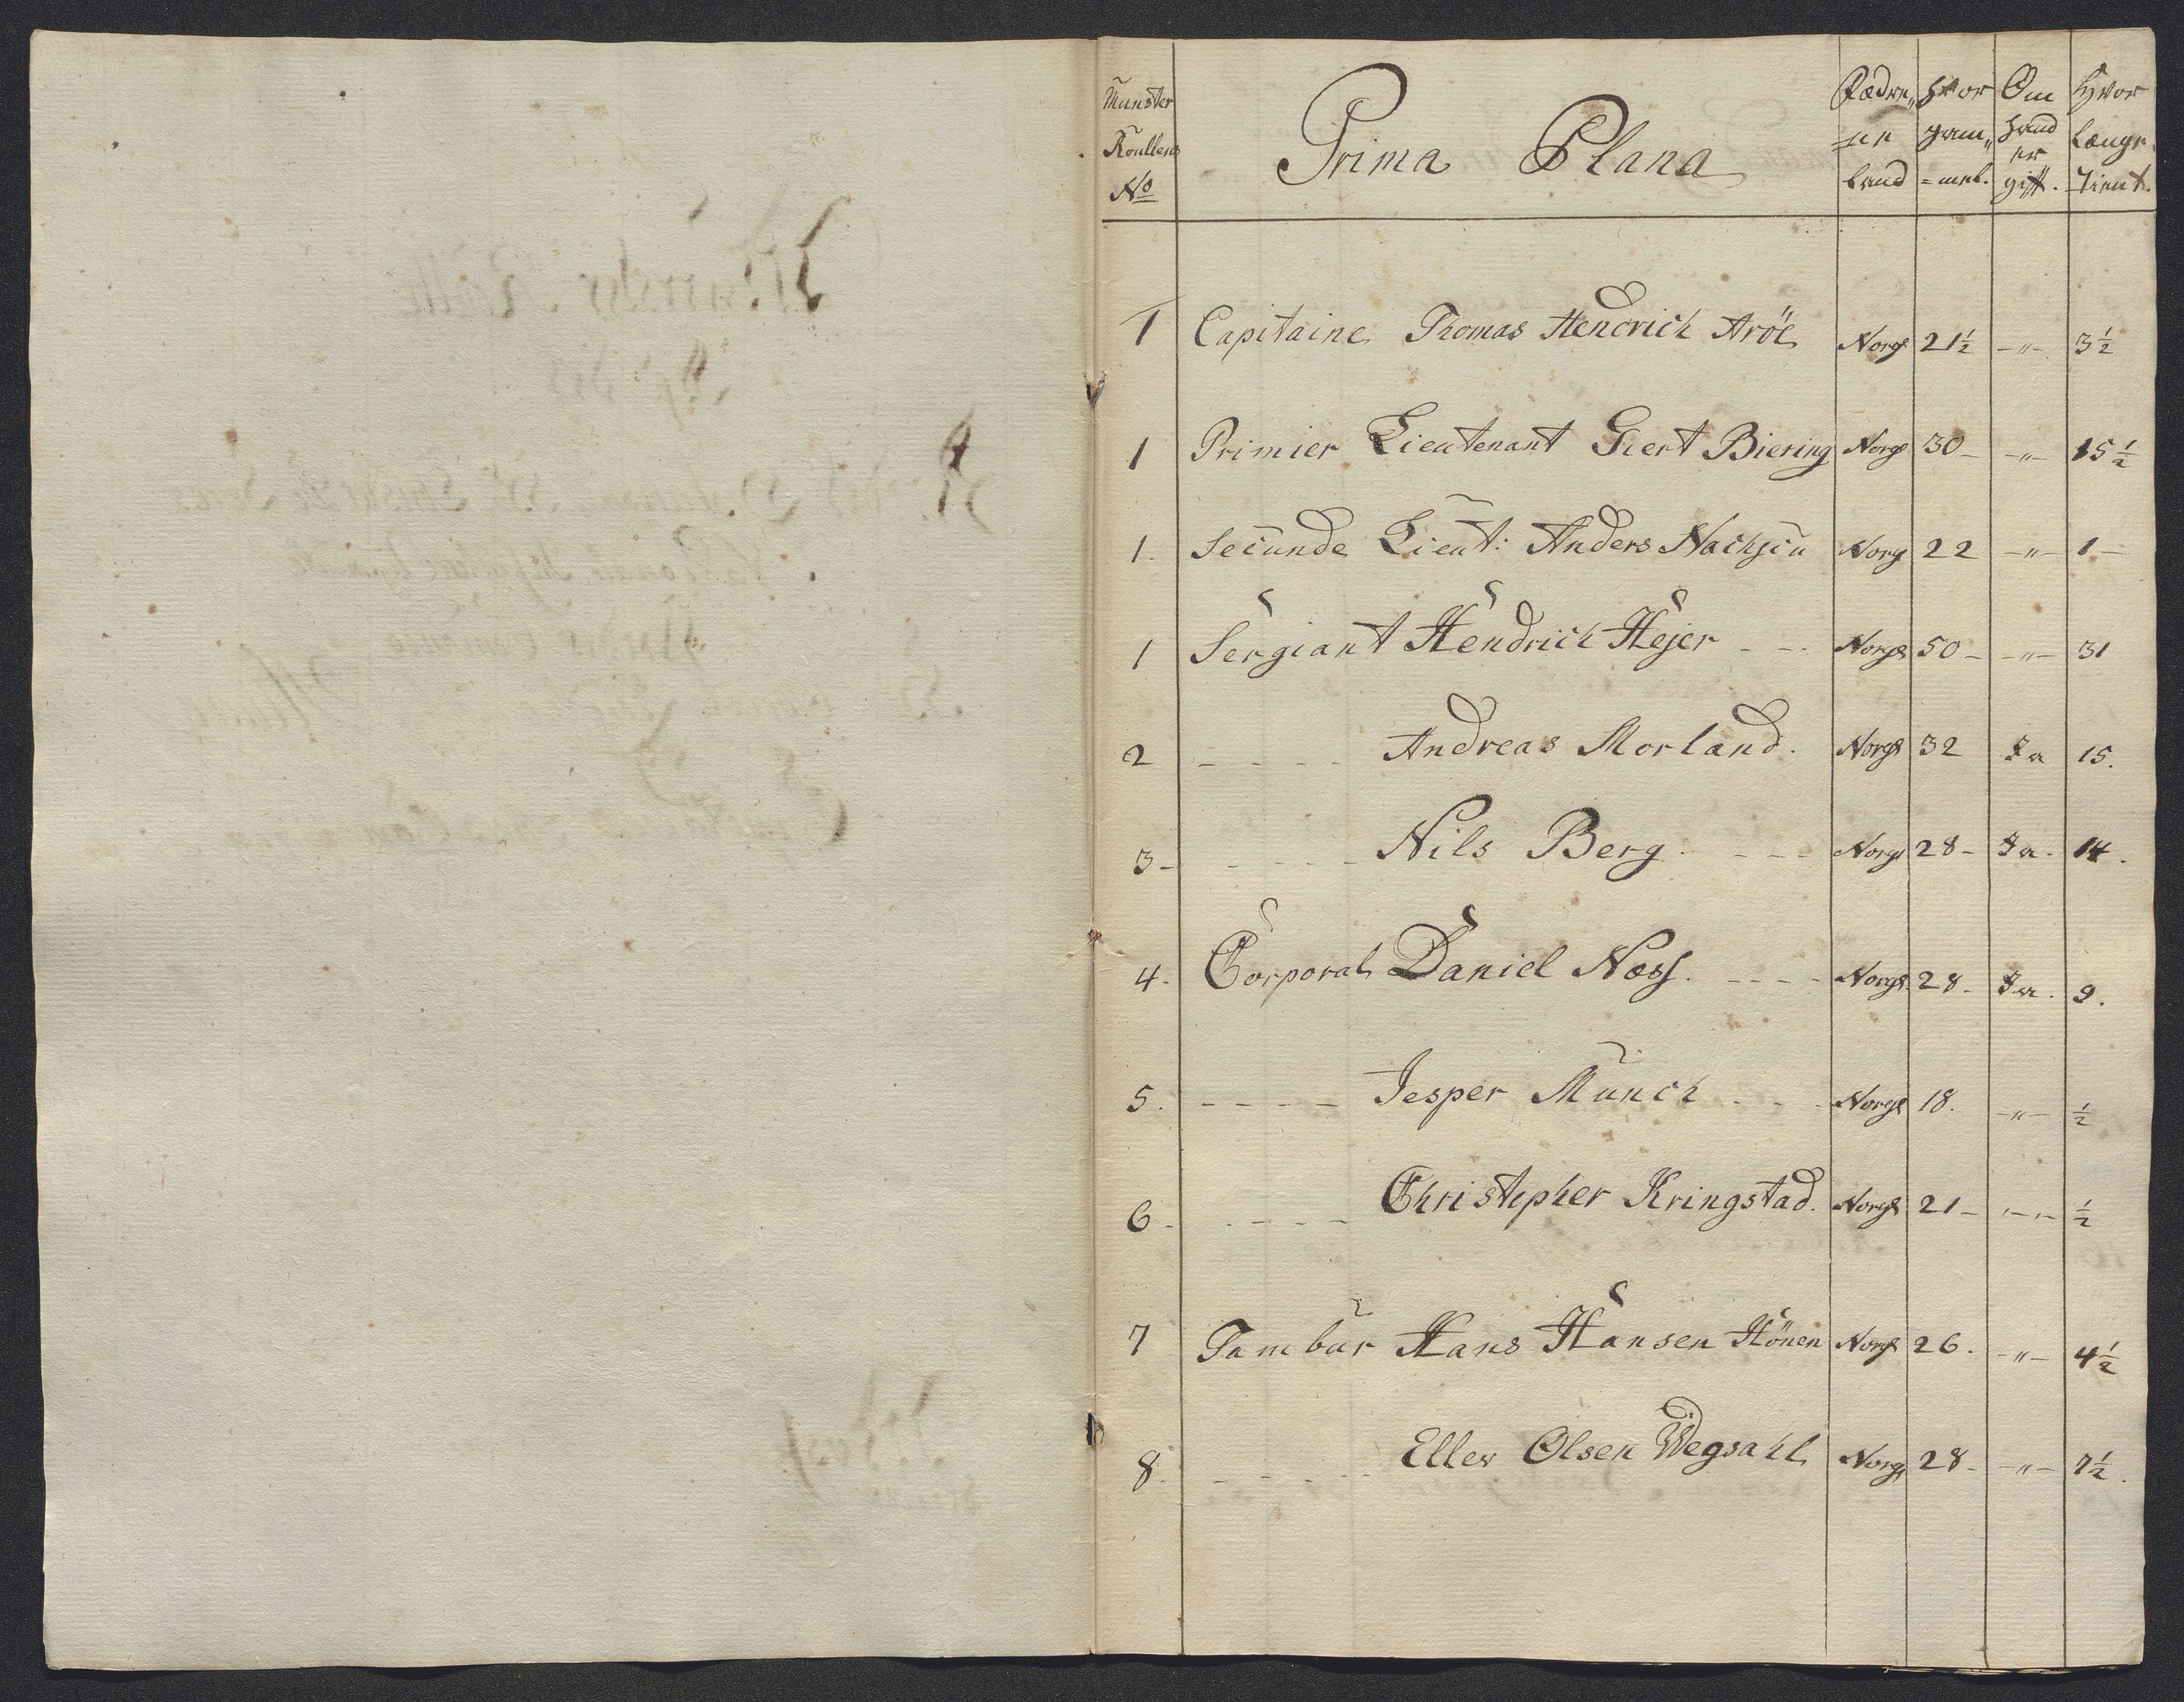 Munster Roullens No
Prima Plana
Fædre, ne Land
Hvor gam,, =mel.
Om hand er gift.
Hvor længe Tient.
1 Capitaine Thomas Hendrich Aröe Norge 21½ -"- 3½
1 Primier Lieutenant Giert Biering Norge 30- -"- 15½
1. Secunde Lieut: Anders Norge 22 -"- 1-
1 Sergiant Hendrich Hejer --- Norge 50- -"- 31
2 ---- Andreas Morland. Norge 32 Ja 15.
3- ---- Nils Berg. --- Norge 28- Ja. 14.
4. Corporal Daniel Næss. ---- Norge. 28. Ja. 9.
5. ---- Jesper Münch --- Norge 18. -"- ½
6. ---- Christopher Kringstad. Norge 21- -"- ½
7 Tambur Hans Hansen Hönen Norge 26. -"- 4½
8. ---- Ellev Olsen Wegsahl Norge 28- -"- 7½.